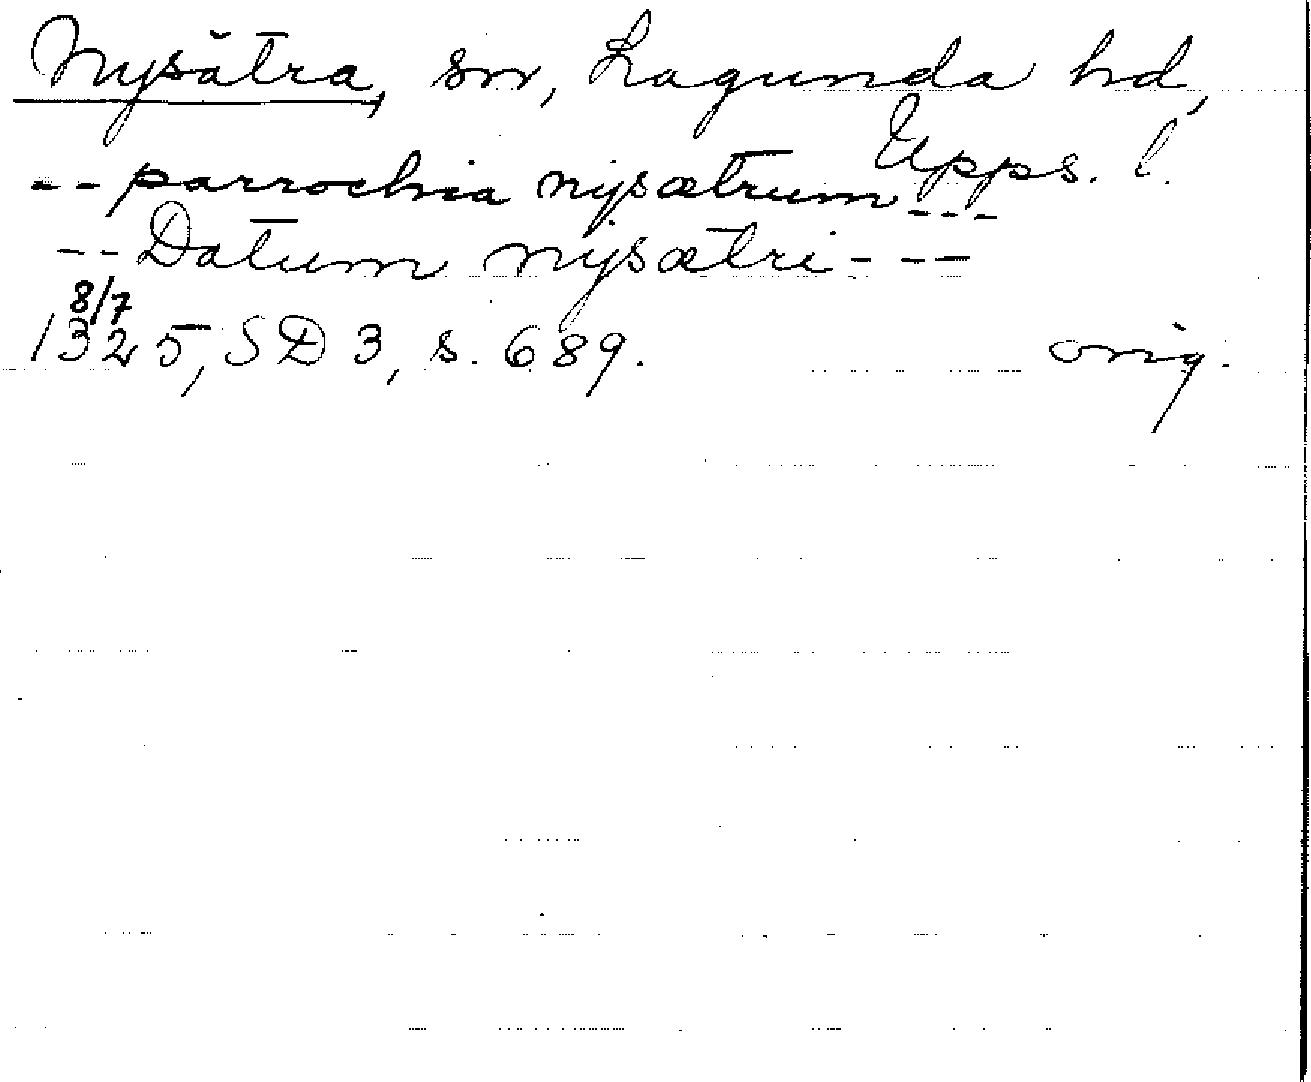 Nysätra, sn, Lagunda hd,
Upps. l.
-- parrochia nysætrum ---
-- Datum nysætri ---
8/7
1325, SD 3, s. 689. orig.